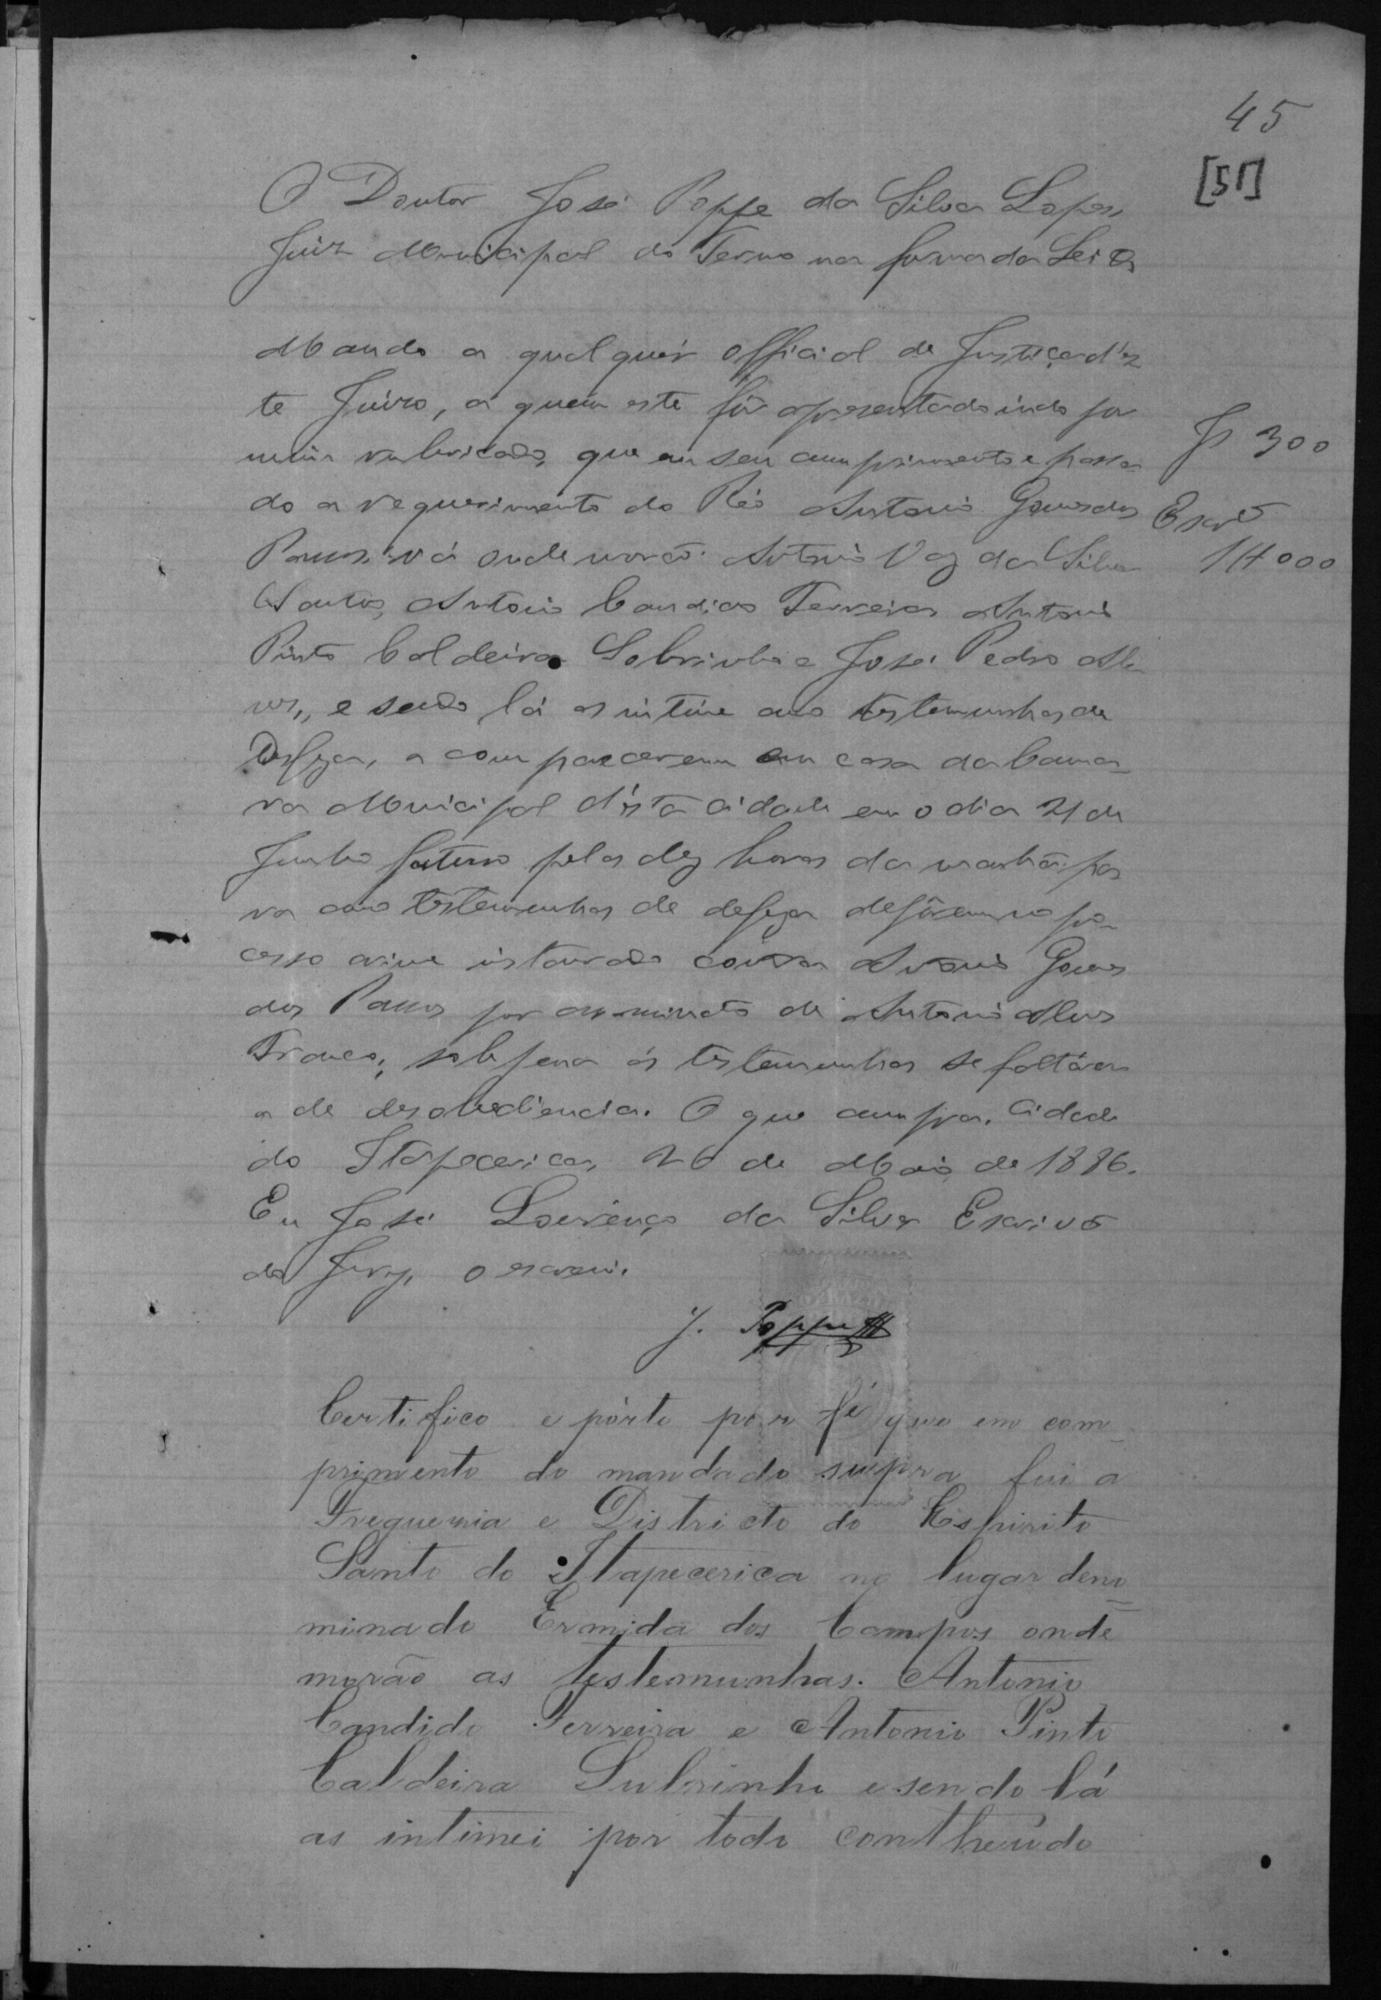 45
[51]
O Doutor José Poppe da Silva Lopes,
Juiz Municipal do Termo na forma da Lei &
Mando a qualquér official de Justiça d'es
te Juizo, a quem este fôr apresentado indo por
mim rubricado, que em seu cumprimento e passa
do a requerimento do Réo Antonio Gomes dos
Passos vá onde morão Antonio Vaz da Silva
Santos, Antonio Candido Ferreira Antonio
Pinto Caldeira Sobrinho e José Pedro Al
ves, e sendo lá as intime como testemunhas de
Defeza, a comparecerem em casa da Cama_
ra Municipal d'ésta cidade em o dia 21 de
Junho futuro pelas dez horas da manhã pa
ra como testemunhas de defeza depôrem no pro_
cesso crime instaurado contra Antonio Gomes
dos Passos por assassinato de Antonio Alves
Franco, sob pena ás testemunhas se faltárem
a de desobediencia. O que cumpra. Cidade
do Itapecerica, 26 de Maio de 1886.
Eu José Lourenço da Silva Escrivão
do Jury, o escrevi.
J. Poppe
J 300
Escr.º
1#000
Certifico e pórto por fé que em com_
primento do mandado suipra fui a
Freguezia e Districto do Espirito
Santo do Itapecerica no lugar deno=
minado Ermida dos Campos onde
morão as testemunhas. Antonio
Candido Ferreira e Antonio Pinto
Caldeira Subrinho e sendo lá
as intimei por todo contheúdo